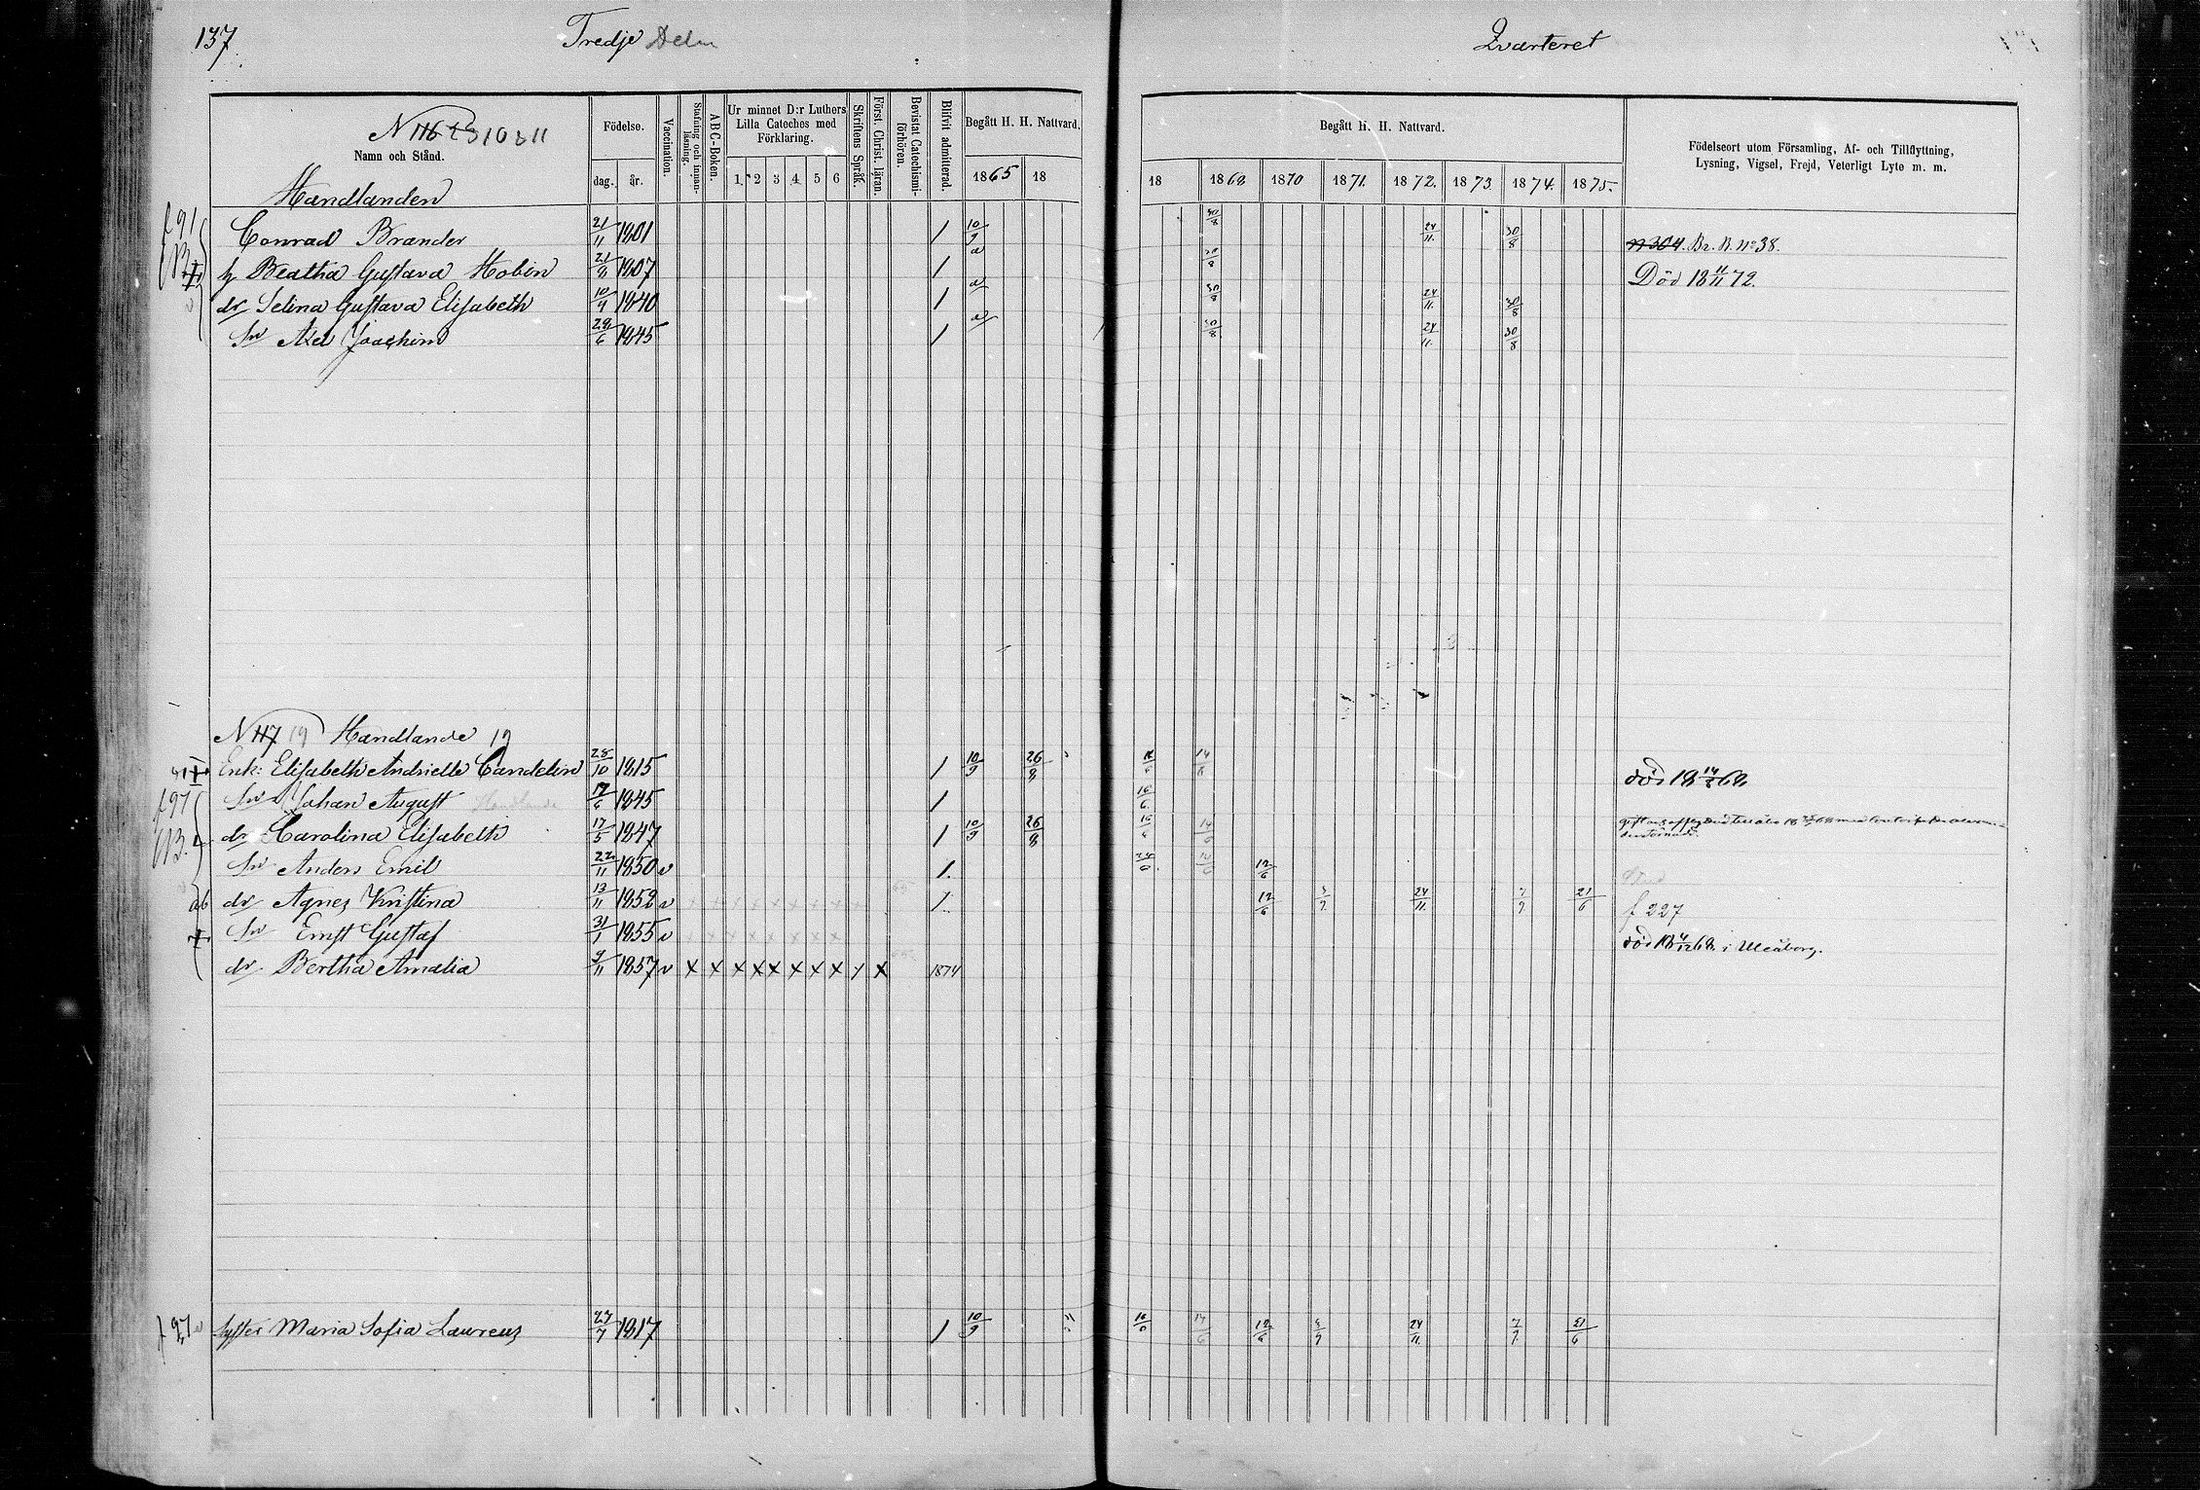 137
Tredje Delen
Qvarteret
N 116 10 & 11
Namn och Stånd.
Födelse.
dag. år.
Vaccination.
Stafning och innan-läsning.
ABC-Boken.
Ur minnet D:r Luthers Lilla Cateches med Förklaring.
1 2 3 4 5 6
Skriftens Språk.
Först. Christ. läran.
Bevistat Catechismi-förhören.
Blifvit admitterad.
Begått H. H. Nattvard.
1865 18
Begått H. H. Nattvard.
18 1868 1870 1871. 1872. 1873 1874. 1875.
Födelseort utom Församling, Af- och Tillflyttning,
Lysning, Vigsel, Frejd, Veterligt Lyte m. m.
Handlanden
Conrad Brander 21/11 1801 1 10/9 30/8 24/11. 30/8 n 304. Br. B. n:o 38.
h Beatha Gustava Mobin 21/8 1807 1 30/8 Död 18 11/11 72.
dr Selina Gustava Elisabeth 10/9 1840 1 30/8 24/11. 30/8
Sn Axel Joachim 29/6 1845 1 30/8 24/11. 30/8
N 117 19 Handlande 19
Enk: Elisabeth Andriette Candelin 28/10 1815 1 10/9 26/8 död 18 68
Sn Johan August Handlande 1845 1
dr Carolina Elisabeth 17/5 1847 1 10/9 26/8 14/6
Sn Anders Emil 22/11 1850 v 1. 14/6 12/6
dr Agnes Kristina 13/11 1852 v 1. 12/6 24/11. 7/9 21/6 f 227
Sn Ernst Gustaf 31/1 1855 v död 18 4/12 68 i Uleåborg.
dr Bertha Amalia 9/11 1857 v x x x x x x x x x 1874
f 97 Syster Maria Sofia Laurens 27/7 1817 1 10/9 14/6 12/6 24/11. 21/6